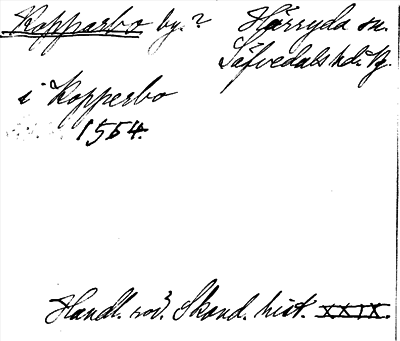 Kopparbo by.? Härryda sn.
Säfvedals hd. Vg.
i Kopperbo
1554.
Handl. rör. Skand. hist. XXIX.